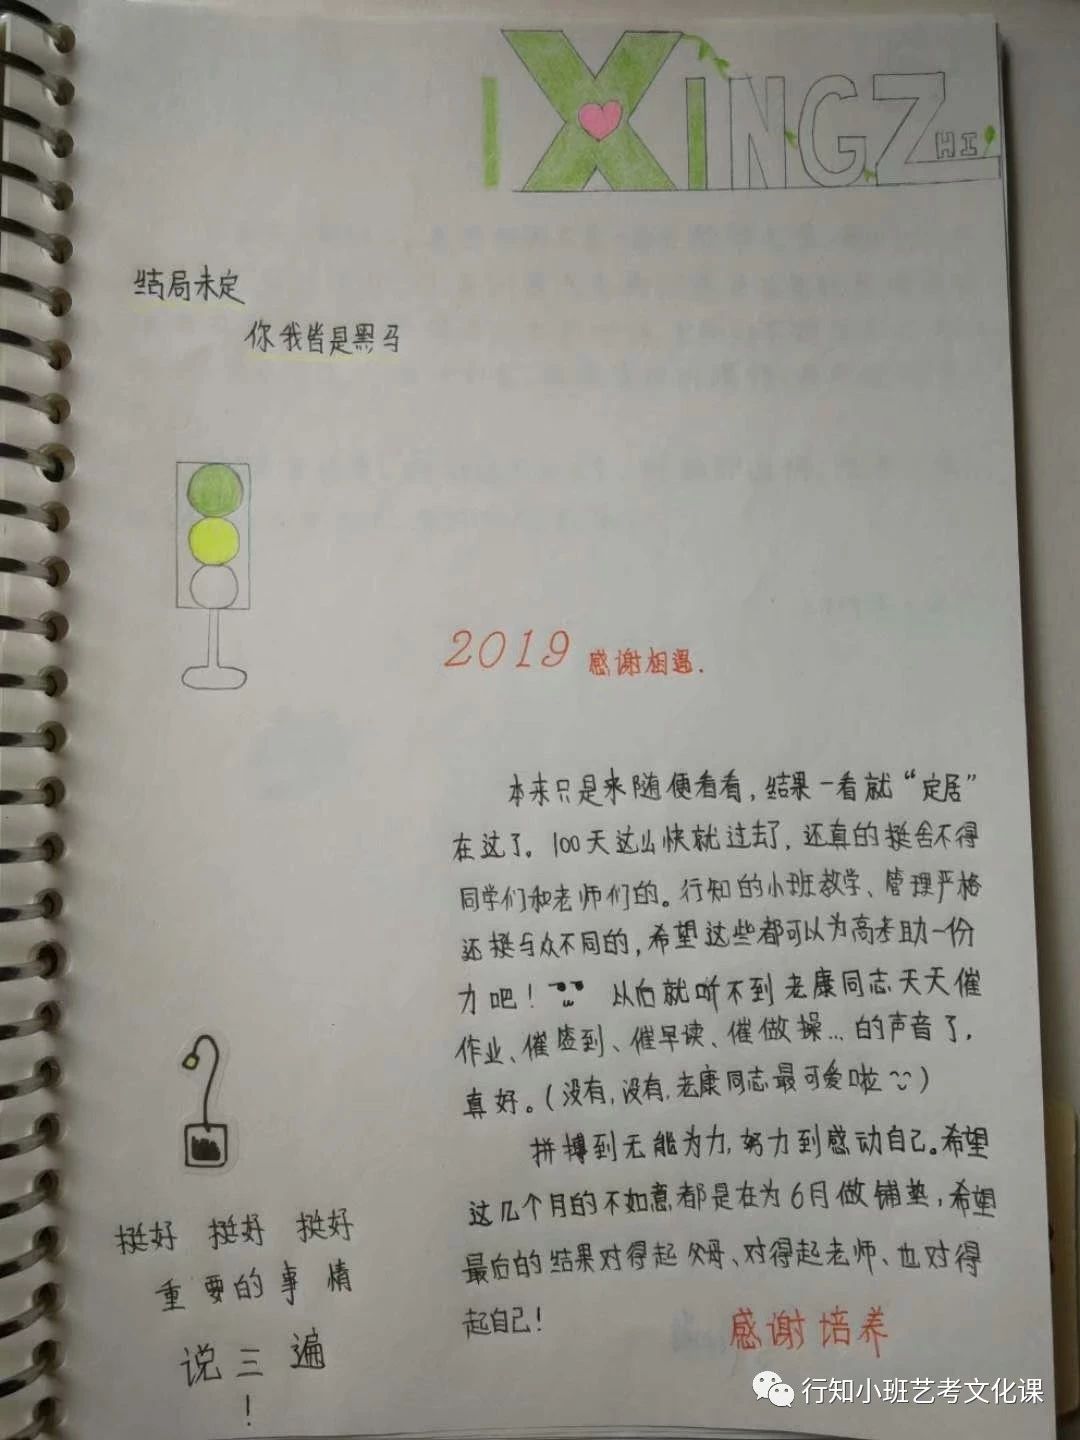 I XINGZHI
结局未定
你我皆是黑马
2019 感谢相遇.
本来只是来随便看看，结果一看就“定居”
在这了。100天这么快就过去了，还真的挺舍不得
同学们和老师们的。行知的小班教学、管理严格
还挺与众不同的，希望这些都可以为高考助一份
力吧！ 从后就听不到老康同志天天催
作业、催签到、催早读、催做操...的声音了，
真好。(没有，没有，老康同志最可爱啦)
拼搏到无能为力，努力到感动自己。希望
这几个月的不如意都是在为6月做铺垫，希望
最后的结果对得起父母、对得起老师、也对得
起自己！
感谢培养
挺好 挺好 挺好
重要的事情
说三遍
！
行知小班艺考文化课